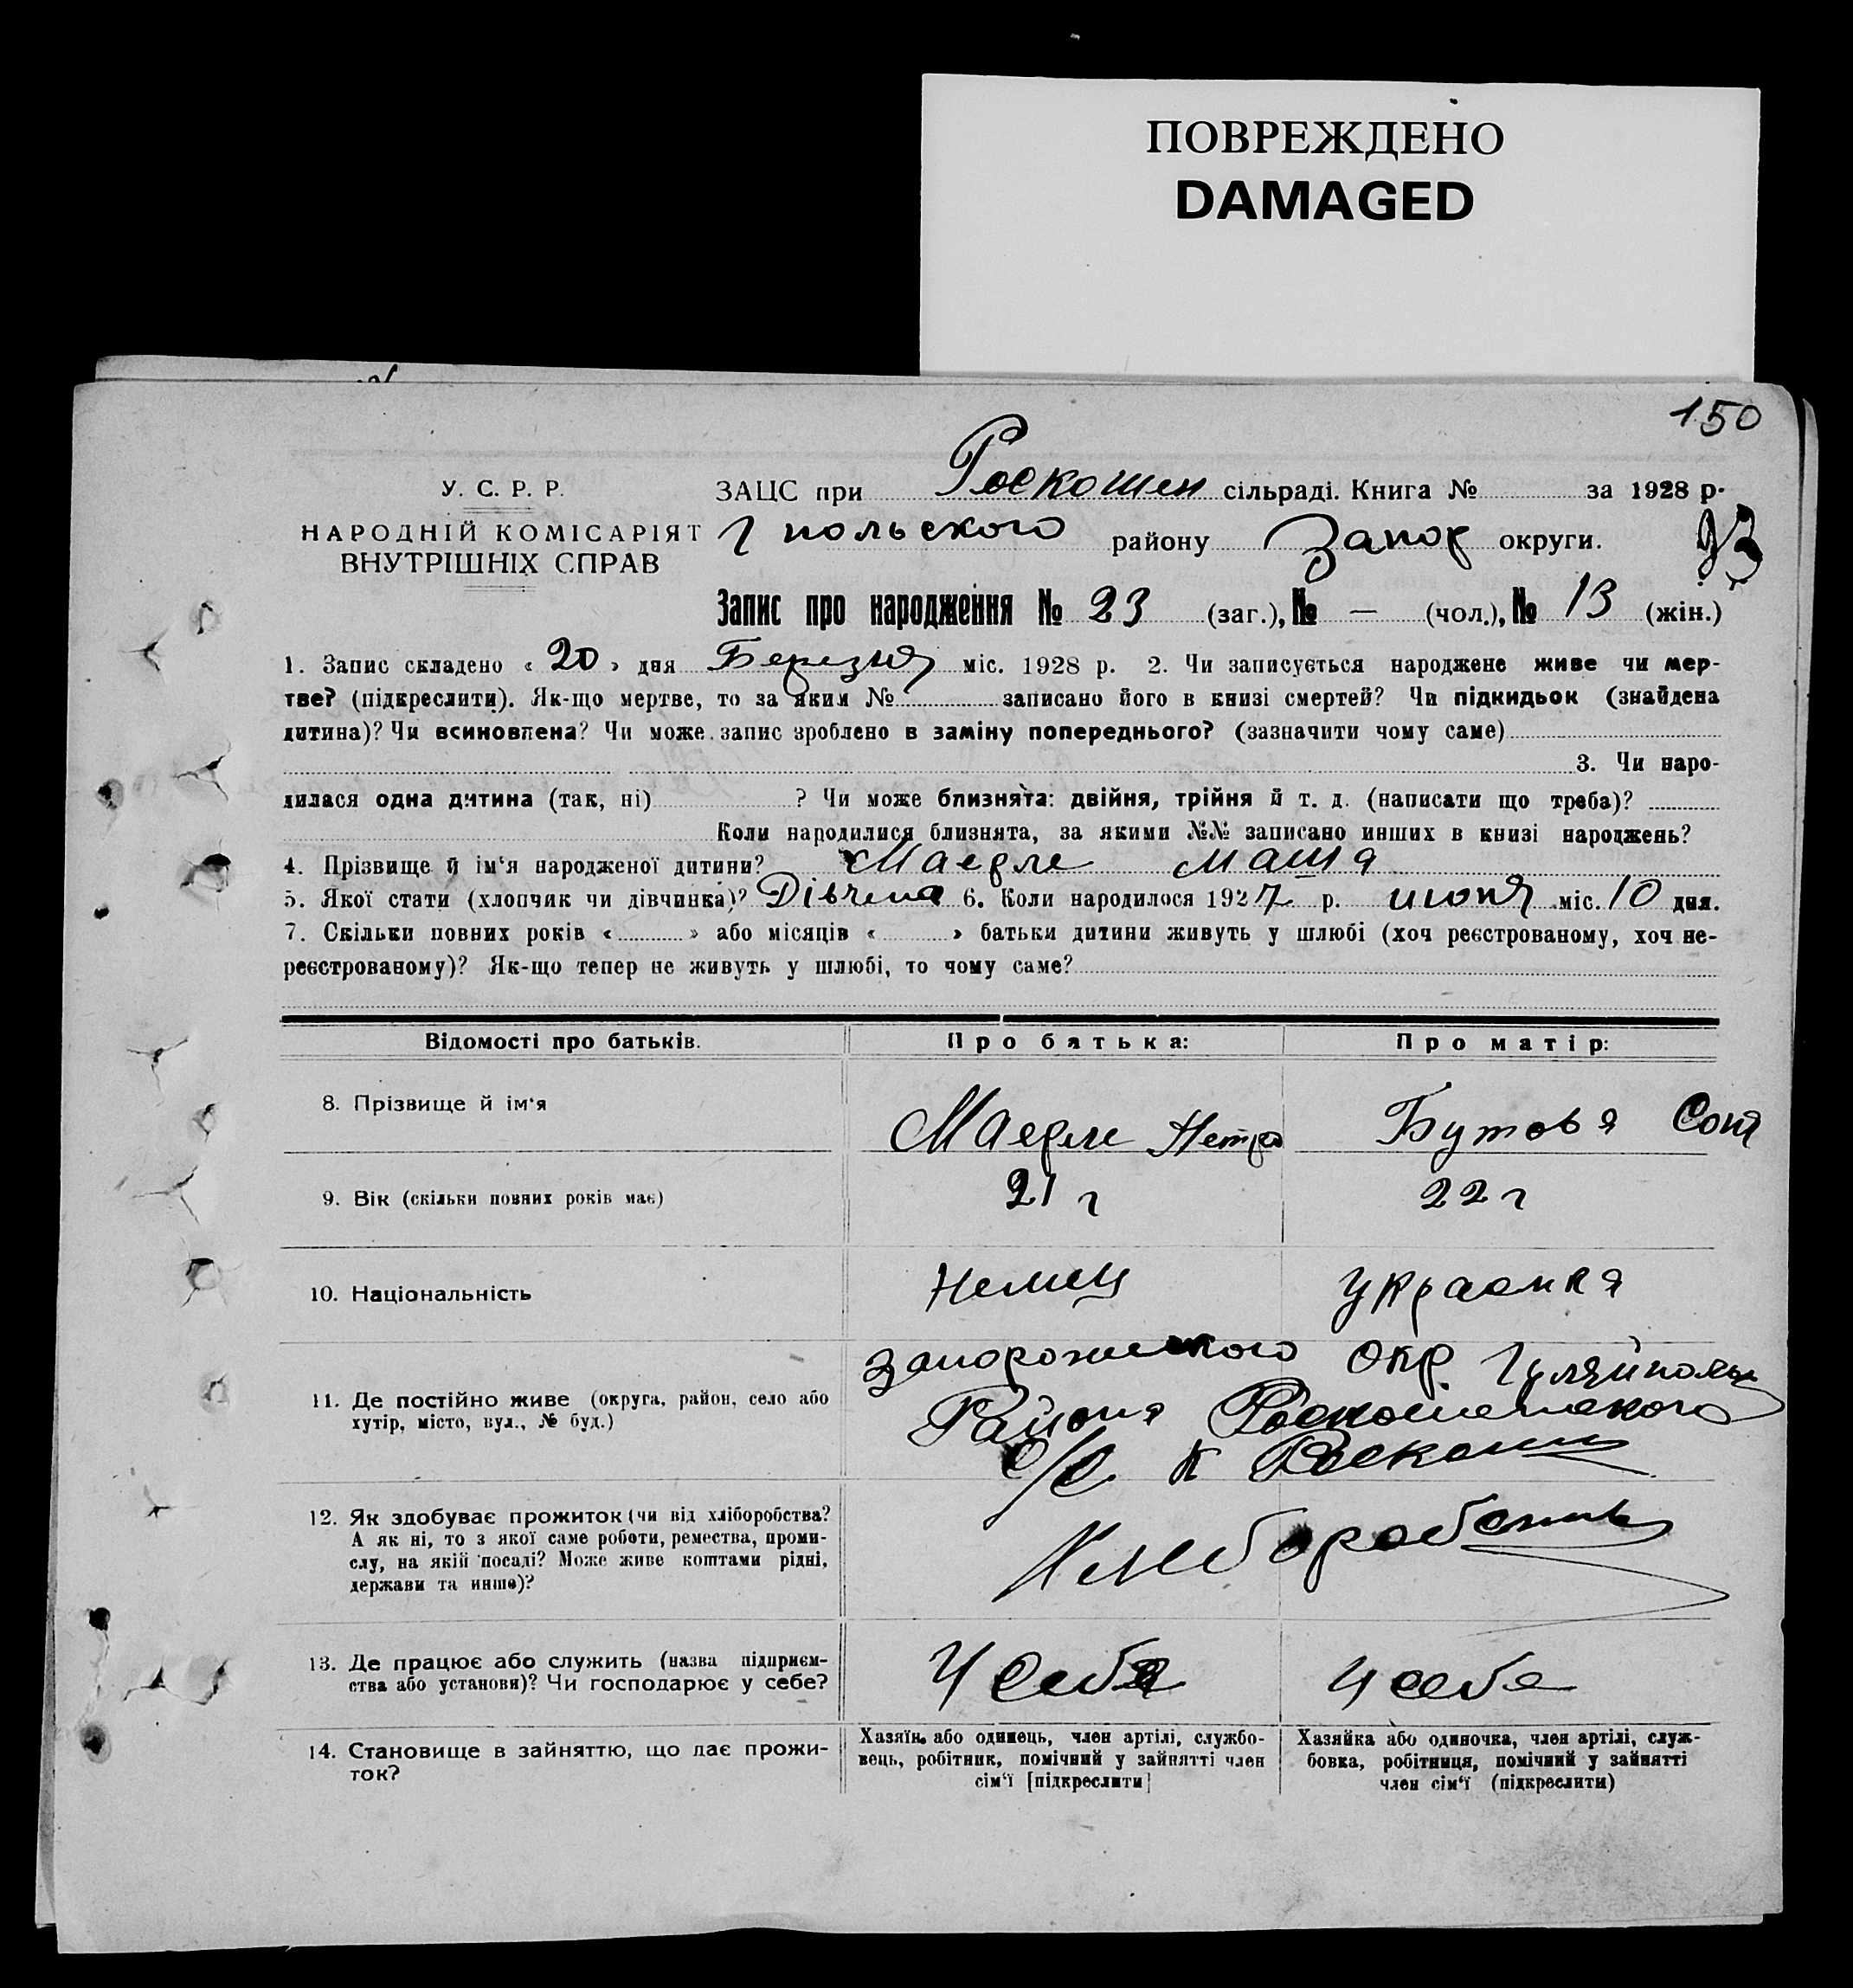 ПОВРЕЖДЕНО
DAMAGED
150
У. С. Р. Р.
НАРОДНІЙ КОМІСАРІЯТ
ВНУТРІШНІХ СПРАВ
ЗАЦС при Роскошен сільраді. Книга № за 1928 р.
Г польского району Запор округи. 23
Запис про народження № 23 (заг.), № — (чол.), № 13 (жін.)
1. Запис складено « 20 » дня Березня міс. 1928 р. 2. Чи записується народжене живе чи мер-
тве? (підкреслити). Як-що мертве, то за яким № записано його в книзі смертей? Чи підкидьок (знайдена
дитина)? Чи всиновлена? Чи може запис зроблено в заміну попереднього? (зазначити чому саме)
3. Чи наро-
дилася одна дитина (так, ні) ? Чи може близнята: двійня, трійня й т. д. (написати що треба)?
Коли народилися близнята, за якими №№ записано инших в книзі народжень?
4. Прізвище й ім‘я народженої дитини? Маерле Маша
5. Якої стати (хлопчик чи дівчинка)? Дівчена 6. Коли народилося 1927 р. июня міс. 10 дня.
7. Скільки повних років « » або місяців « » батьки дитини живуть у шлюбі (хоч реєстрованому, хоч не-
реєстрованому)? Як-що тепер не живуть у шлюбі, то чому саме?
Відомості про батьків. Про батька: Про матір:
8. Прізвище й ім‘я Маерле Петро Бутовя Соня
9. Вік (скільки повних років має) 21 г 22 г
10. Національність Немец Украенкя
11. Де постійно живе (округа, район, село або
хутір, місто, вул., № буд.)
Запорожского Окр Гуляйполь
Района Роскошенского
с/с к Роскошн
12. Як здобуває прожиток (чи від хліборобства?
А як ні, то з якої саме роботи, ремества, проми-
слу, на якій посаді? Може живе коштами рідні,
держави та инше)?
13. Де працює або служить (назва підприєм-
ства або установи)? Чи господарює у себе?
У себя У себе
14. Становище в зайняттю, що дає прожи-
ток?
Хазяїн або одинець, член артілі, службо-
вець, робітник, помічний у зайнятті член
сім‘ї [підкреслити]
Хазяйка або одиночка, член артілі, служ-
бовка, робітниця, помічний у зайнятті
член сім‘ї (підкреслити)